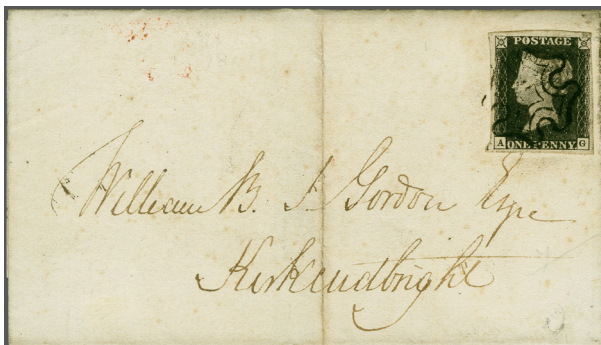 POSTAGE
A ONE PENNY G
William B. S. Gordon Esqe
Kirkcudbright